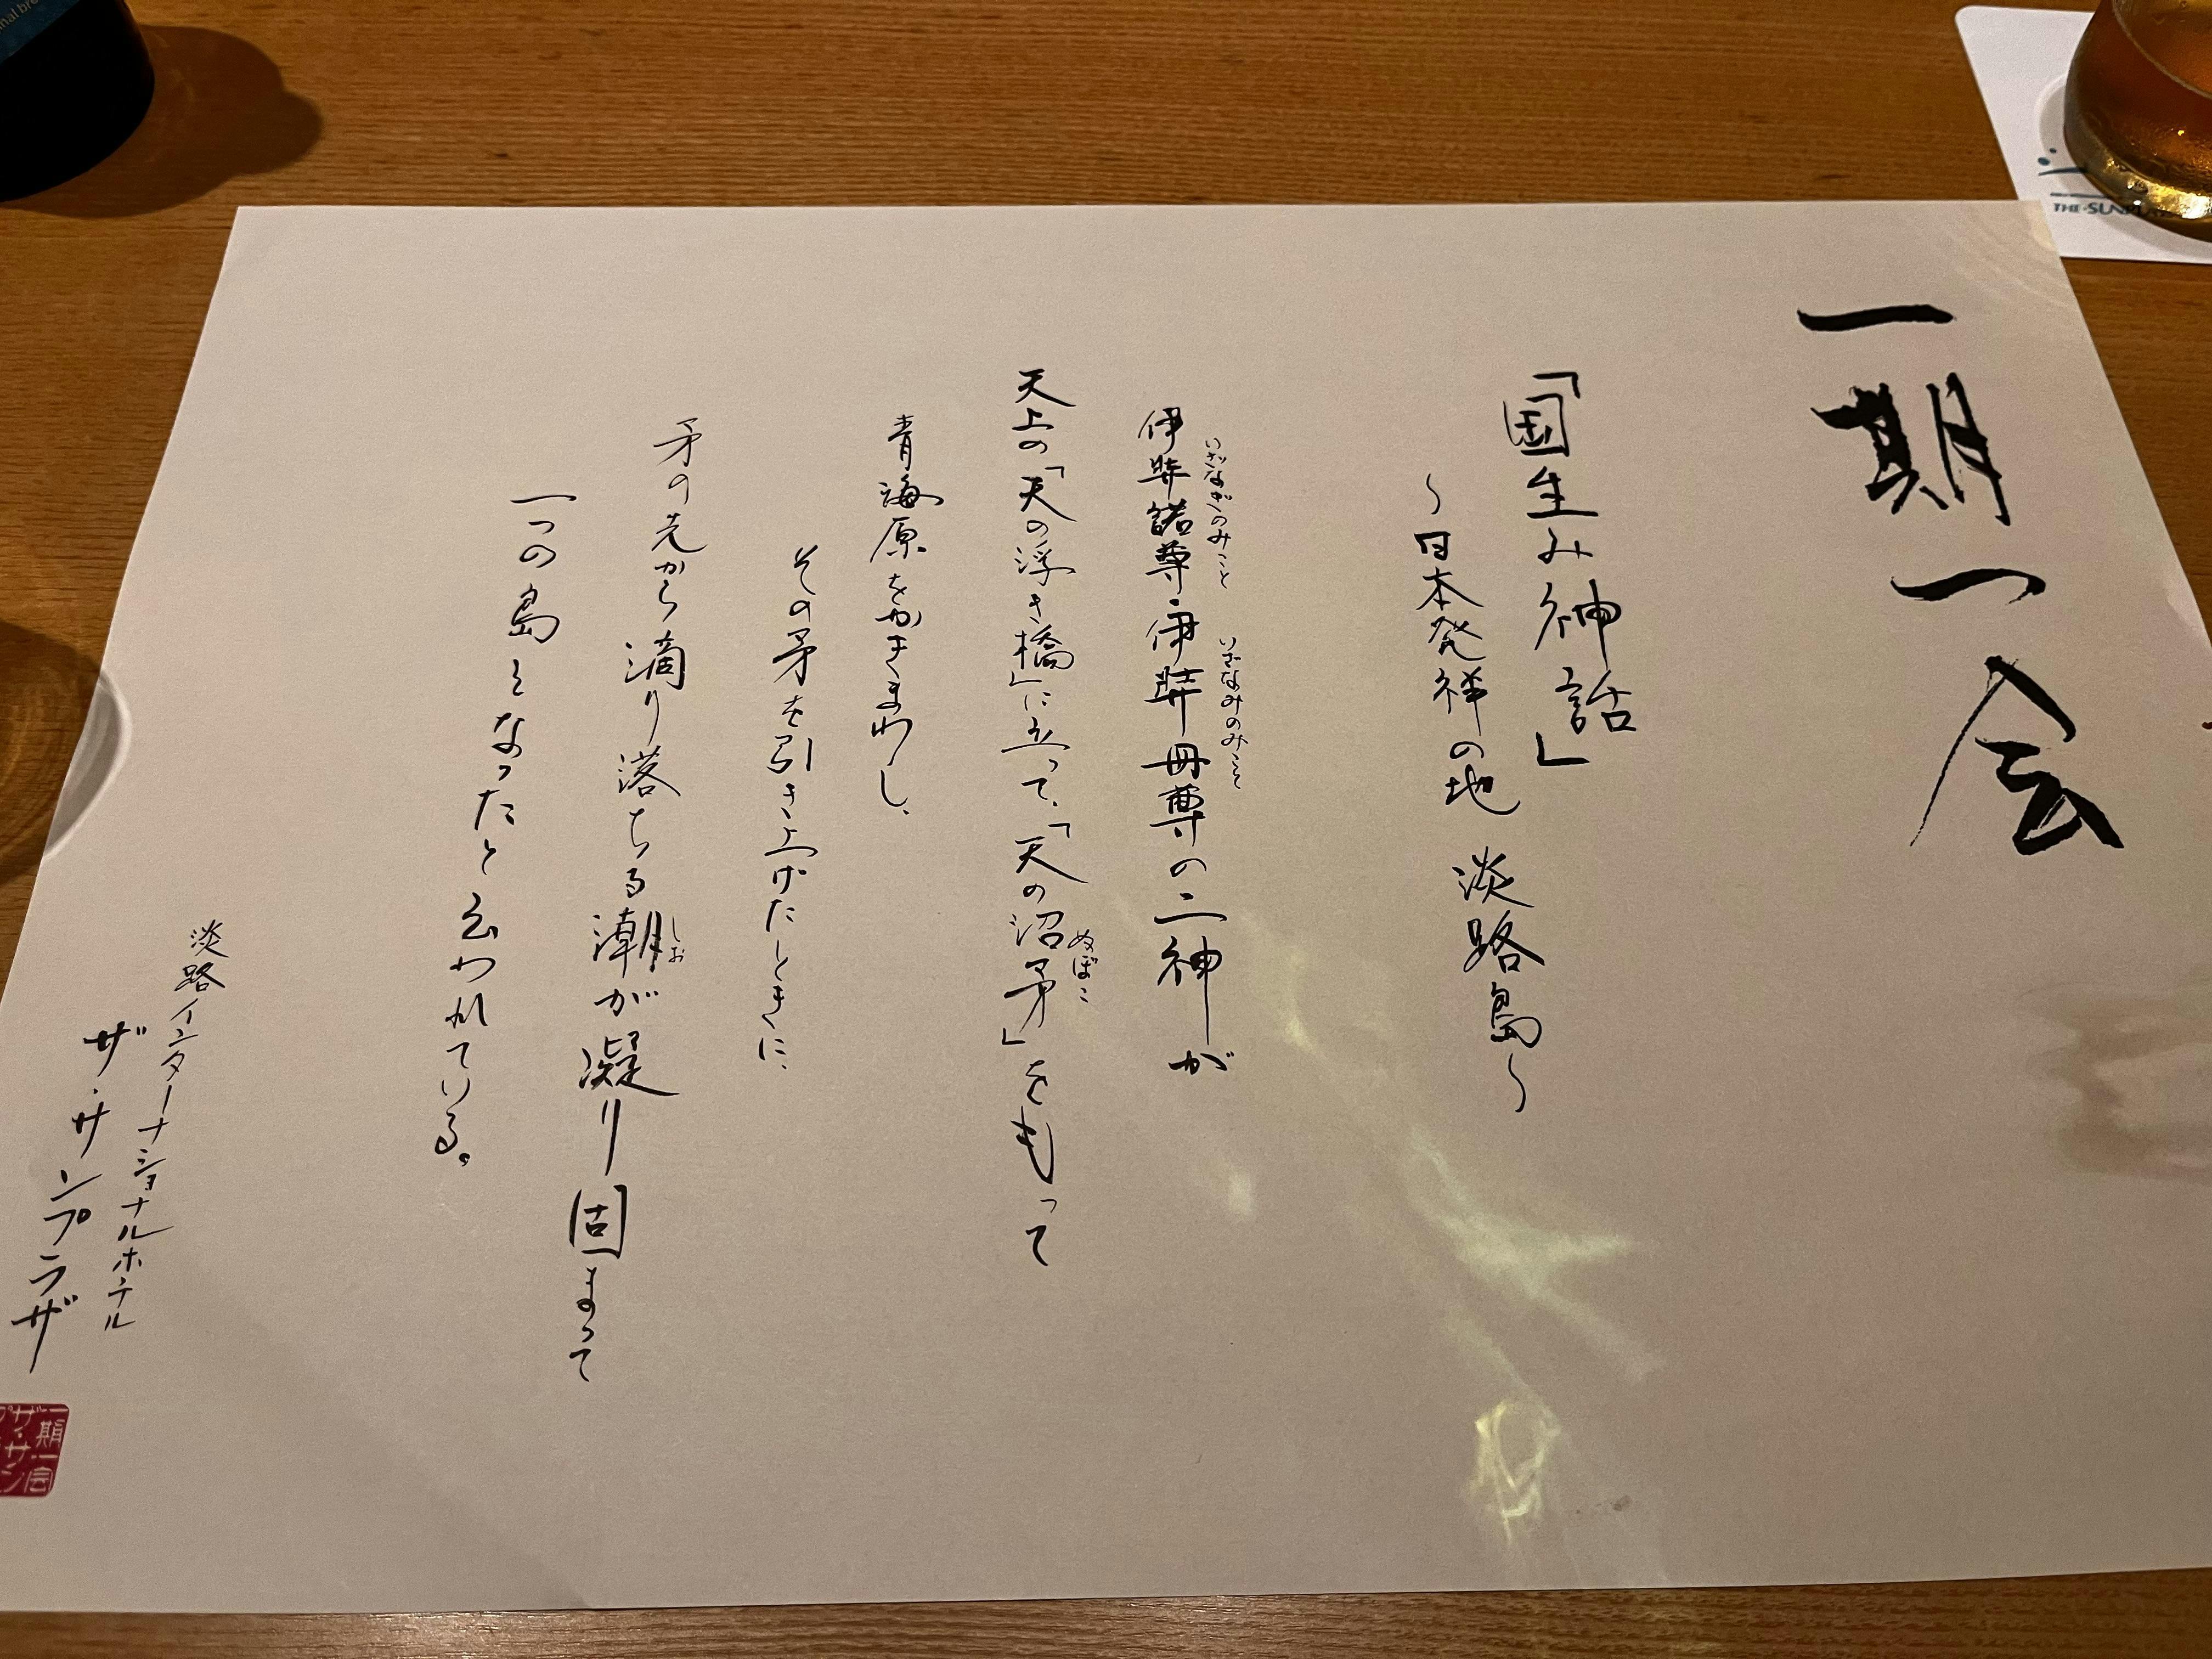 一期一会
「国生み神話」
～日本発祥の地 淡路島～
いざなぎのみこと いざなみのみこと
伊弉諾尊・伊弉冊尊の二神が
天上の「天の浮き橋」に立って、「天の沼矛」をもって
ぬぼこ
青海原をかきまわし、
その矛を引き上げたときに、
矛の先から滴り落ちる潮が凝り固まって
しお
一つの島となったと云われている。
淡路インターナショナルホテル
ザ・サンプラザ
一期一会
ザ・サン
THE SUN